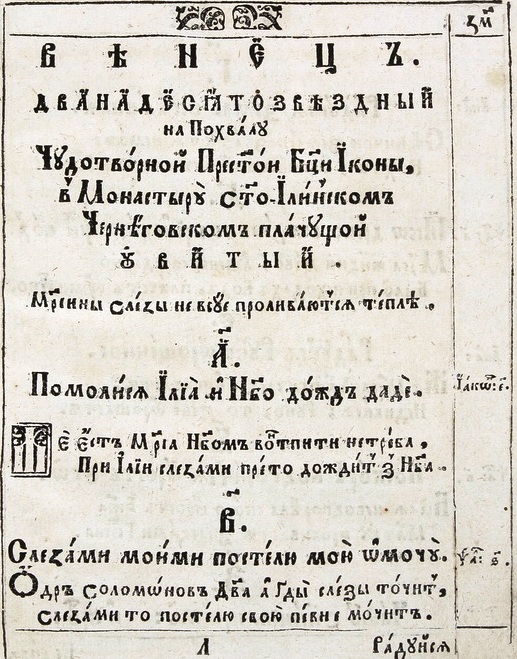 ЗМ҃
ВѢНЕЦЪ.
ДВАНАДЕСѦТОЗВѢЗДНЫЙ
на Похвалу
Чудотворной Прест҃ой Бц҃и Їконы,
в Монастырꙋ ст҃о-Їлинском
Чернѣговскомъ плачущой
ѹвитый.
Мр҃еины слезы не всуе проливаются теплѣ.
А҃.
Помолися Їлїа и Нб҃о дождъ даде.
Їаков: е҃.
Не естъ Мр҃іа Нб҃ом вотпити нетреба,
При Їлїи слезами прето дождит з Нб҃а.
В҃.
Слезами моими постелю мою ѡмочу.
Ѱал: ѕ҃.
Одръ соломоновъ Дв҃а а Гд҃ы слезы точит,
слезами то постелю свою певне мочит.
Л
Радуйся